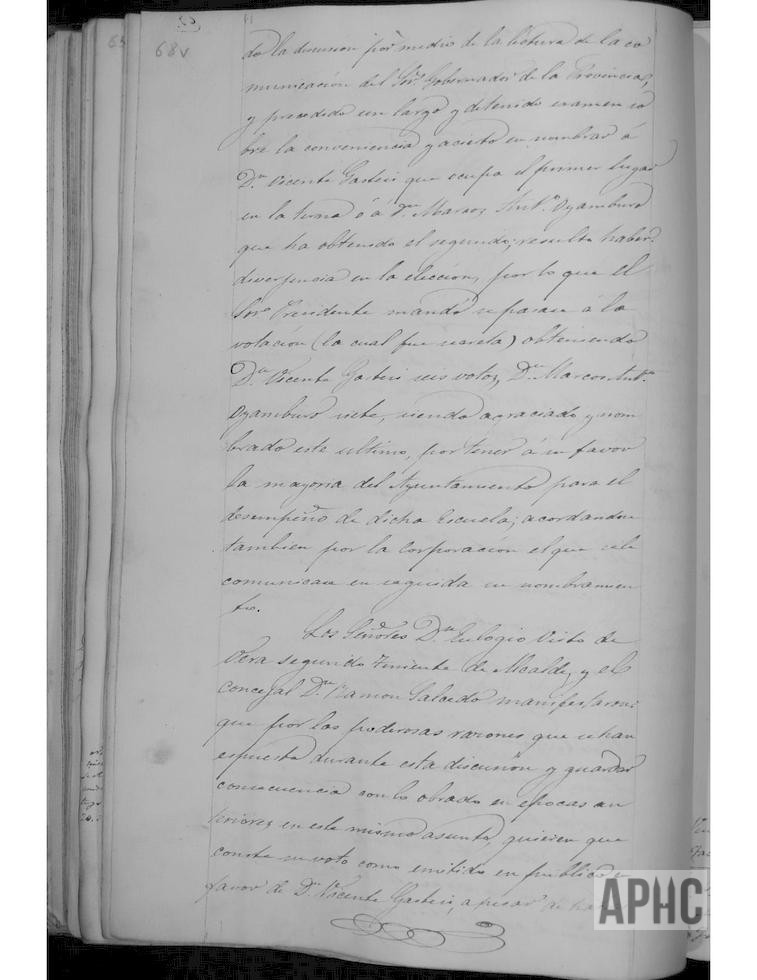 68v
do la discusion por medio de la lectura de la co
municación del Sor. Gobernador de la Provincia,
y precedido un largo y detenido examen so
bre la conveniencia y acierto en nombrar á
Dn. Vicente Gasteri que ocupa el primer lugar
en la terna ó á Dn. Marcos Antº. Oyamburo
que ha obtenido el segundo; resulta haber
divergencia en la eleccion, por lo que el
Sor. Presidente mandó se pasase á la
votación (la cual fue secreta) obteniendo
Dn. Vicente Gasteri seis votos, Dn. Marcos Antº.
Oyamburo siete, siendo agraciado y nom
brado este ultimo, por tener á su favor
la mayoria del Ayuntamiento para el
desempeño de dicha Escuela; acordandose
tambien por la Corporacion el que se le
comunicase en seguida su nombramien
to.
Los Señores Dn. Eulogio Visto de
Vera segundo Teniente de Alcalde, y el
concejal Dn. Ramon Salcedo manifestaron:
que por las poderosas razones que se han
espuesto durante esta discusion y guardar
consecuencia con lo obrado en epocas an
teriores en este mismo asunto, quieren que
conste su voto como emitido en publico a
favor de Dn. Vicente Gasteri, a pesar de
APHC